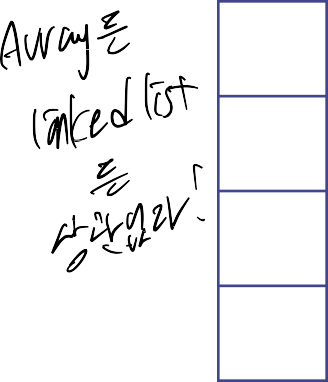 Array든
linked list
든
상관없다!